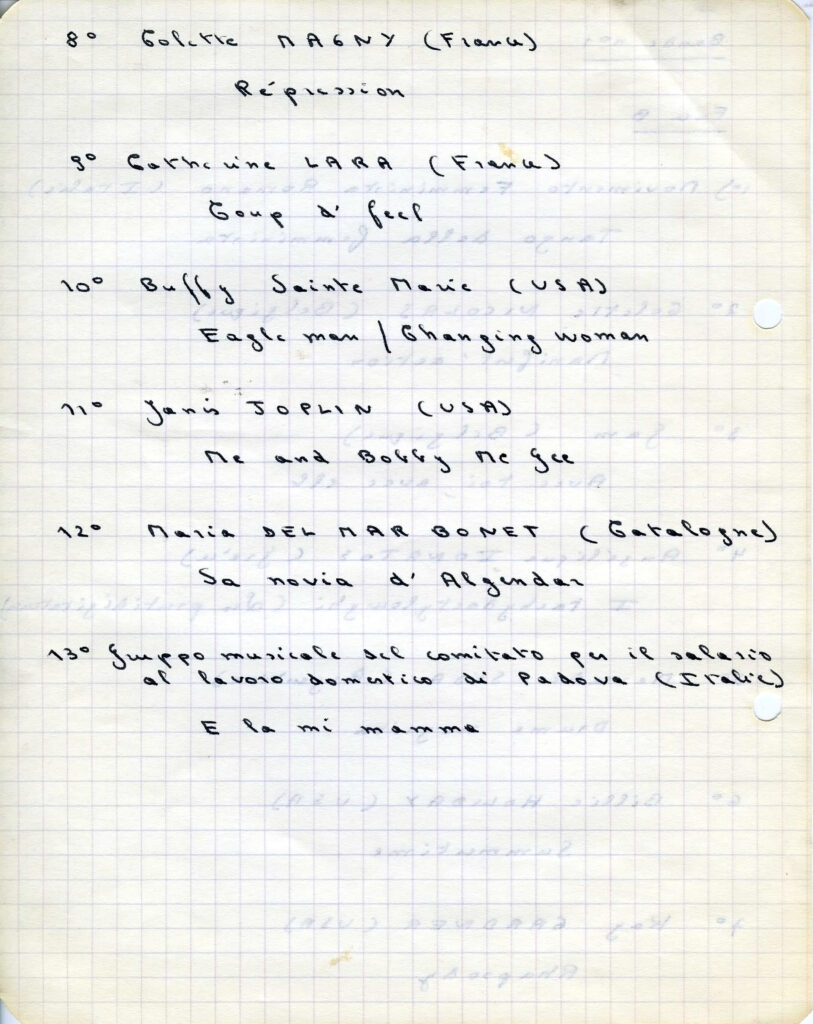 8° Colette MAGNY (France)
Répression
9° Catherine LARA (France)
Coup d' feel
10° Buffy Sainte Marie (USA)
Eagle man / Changing woman
11° Janis JOPLIN (USA)
Me and Bobby Mc Gee
12° Maria DEL MAR BONET (Catalogne)
Sa novia d' Algendar
13° Gruppo musicale del comitato per il salario
al lavoro domestico di Padova (Italie)
E la mi mamma